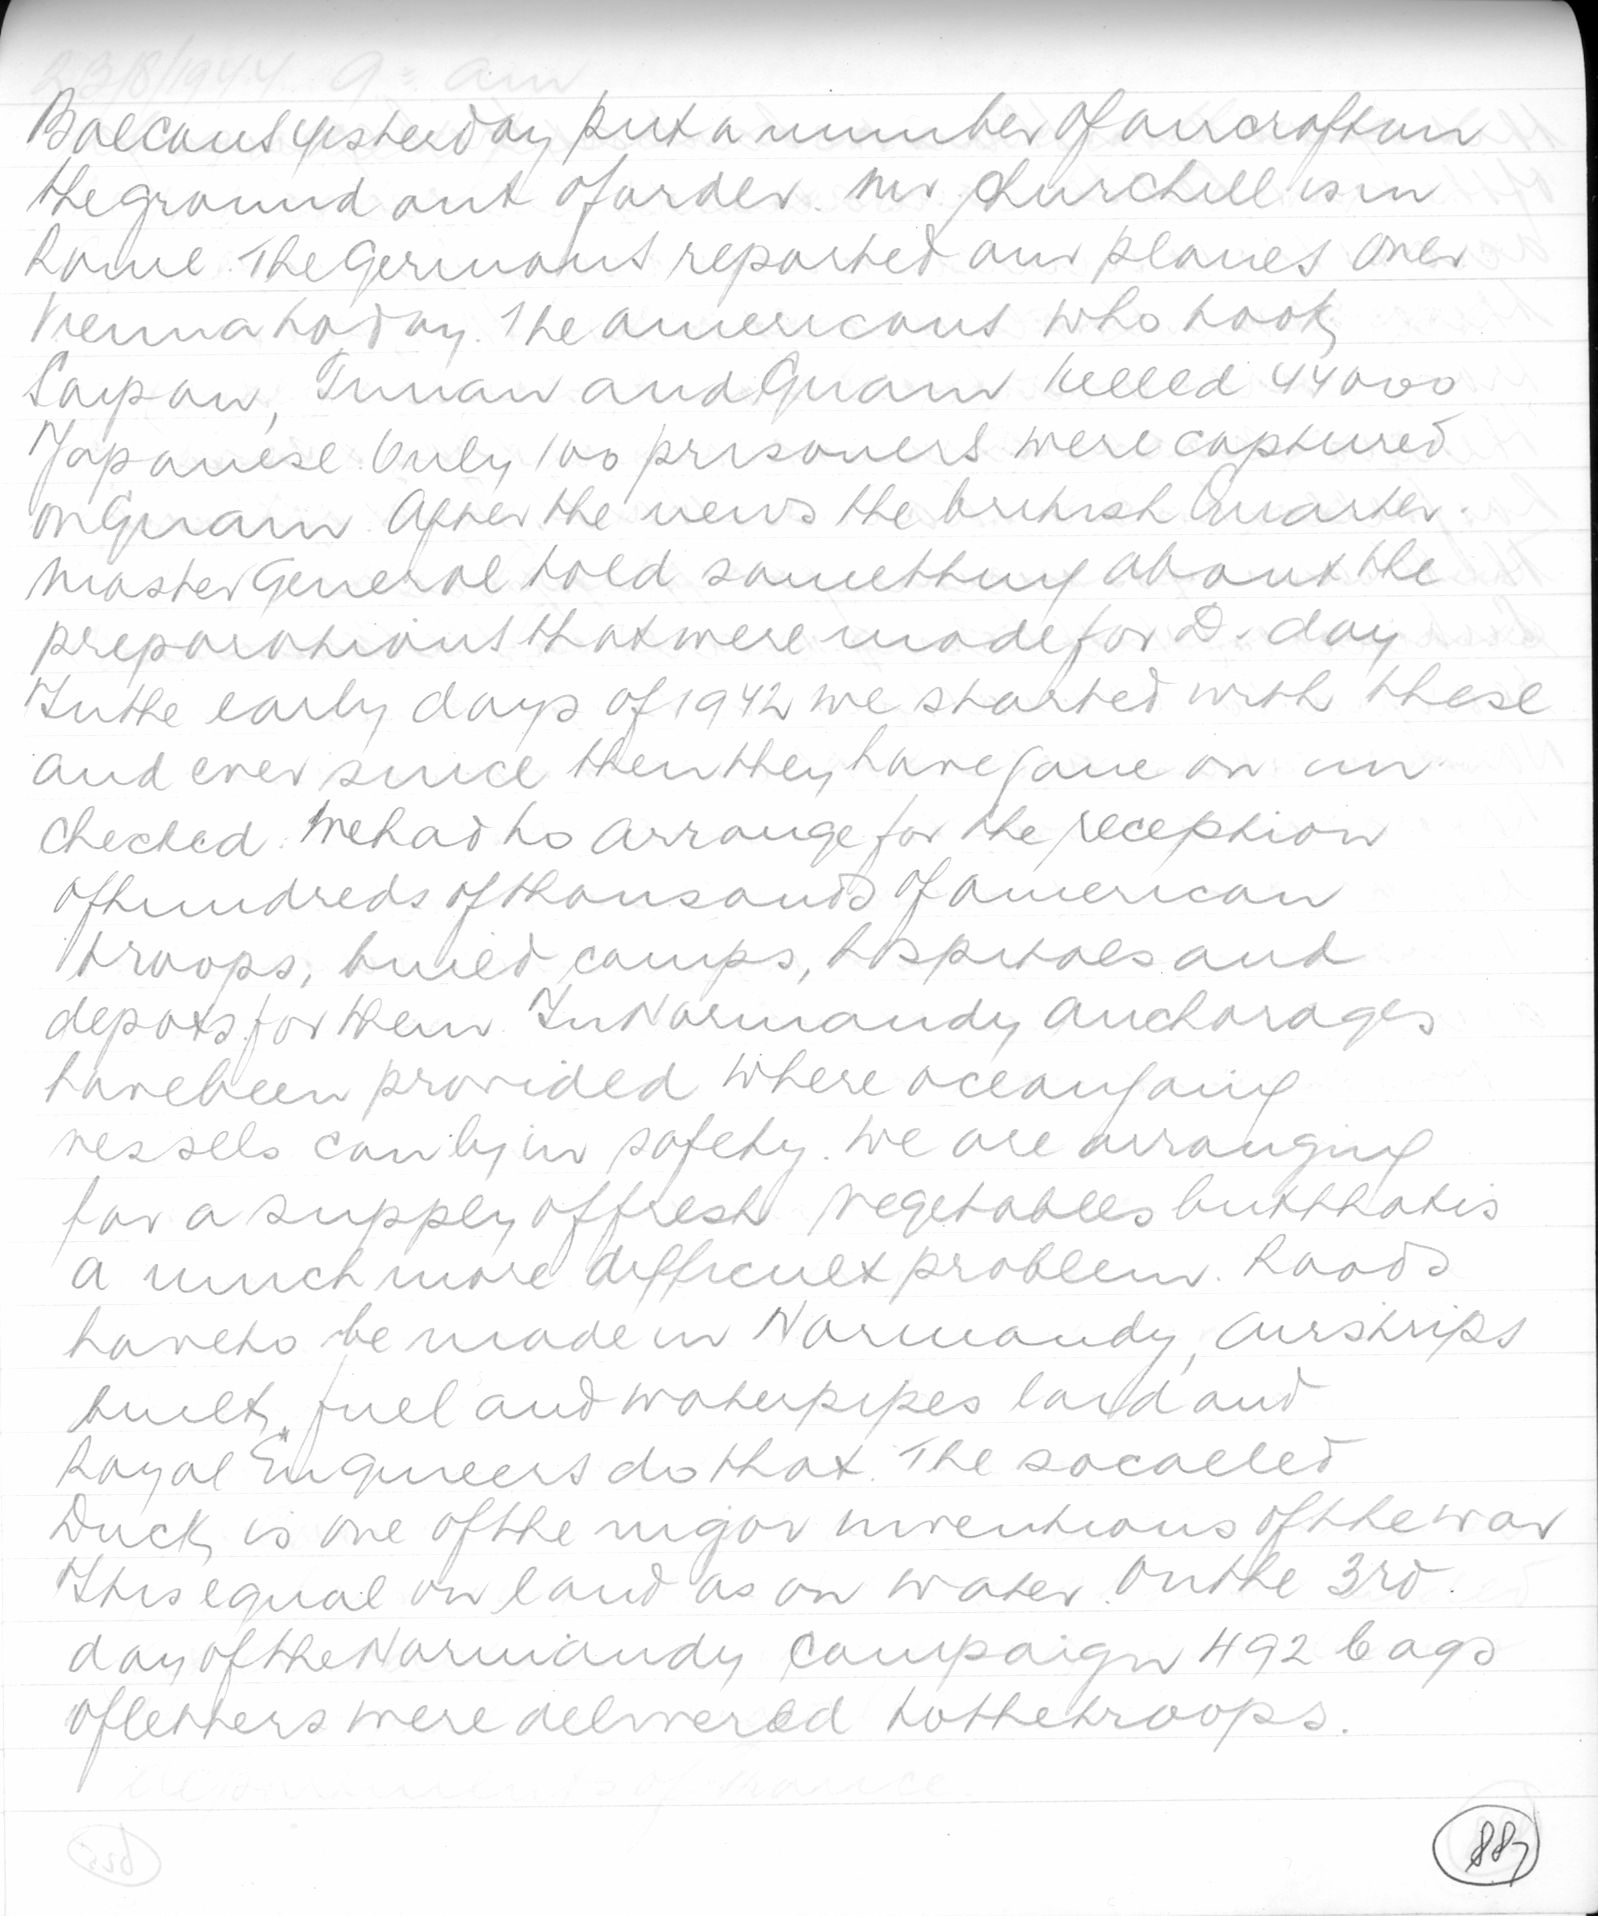 23/8/1944 9= am
Balcans yesterday put a number of aircraft on
the ground out of order. Mr Churchill is in
Rome. The Germans reported our planes over
Vienna today. The americans who took
Saipan, Tinian and Guam killed 44000
Japanese. Only 100 prisoners were captured
on Guam. After the news the british Quarter-
master General told something about the
preparations that were made for D-day
In the early days of 1942 we started with these
and ever since then they have gone on un-
checked. We had to arrange for the reception
of hundreds of thousands of american
troops, build camps, hospitals and
depots for them. In Normandy anchorages
have been provided where oceangoing
vessels can ly in safety. We are arranging
for a supply of fresh vegetables but that is
a much more difficult problem. Roads
have to be made in Normandy, airstrips
built, fuel and waterpipes laid and
Royal Engineers do that. The socalled
Duck is one of the major inventions of the war
It is equal on land as on water. On the 3rd
day of the Normandy campaign 492 bags
of letters were delivered to the troops.
887